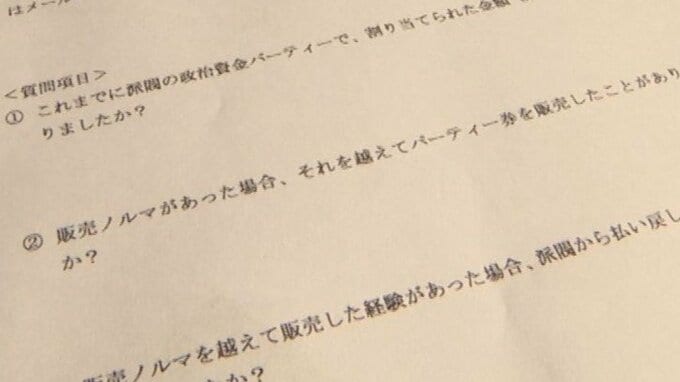 はメール
＜質問項目＞
① これまでに派閥の政治資金パーティーで、割り当てられた金額
りましたか？
② 販売ノルマがあった場合、それを越えてパーティー券を販売したことがあり
か？
販売ノルマを越えて販売した経験があった場合、派閥から払い戻し
か？